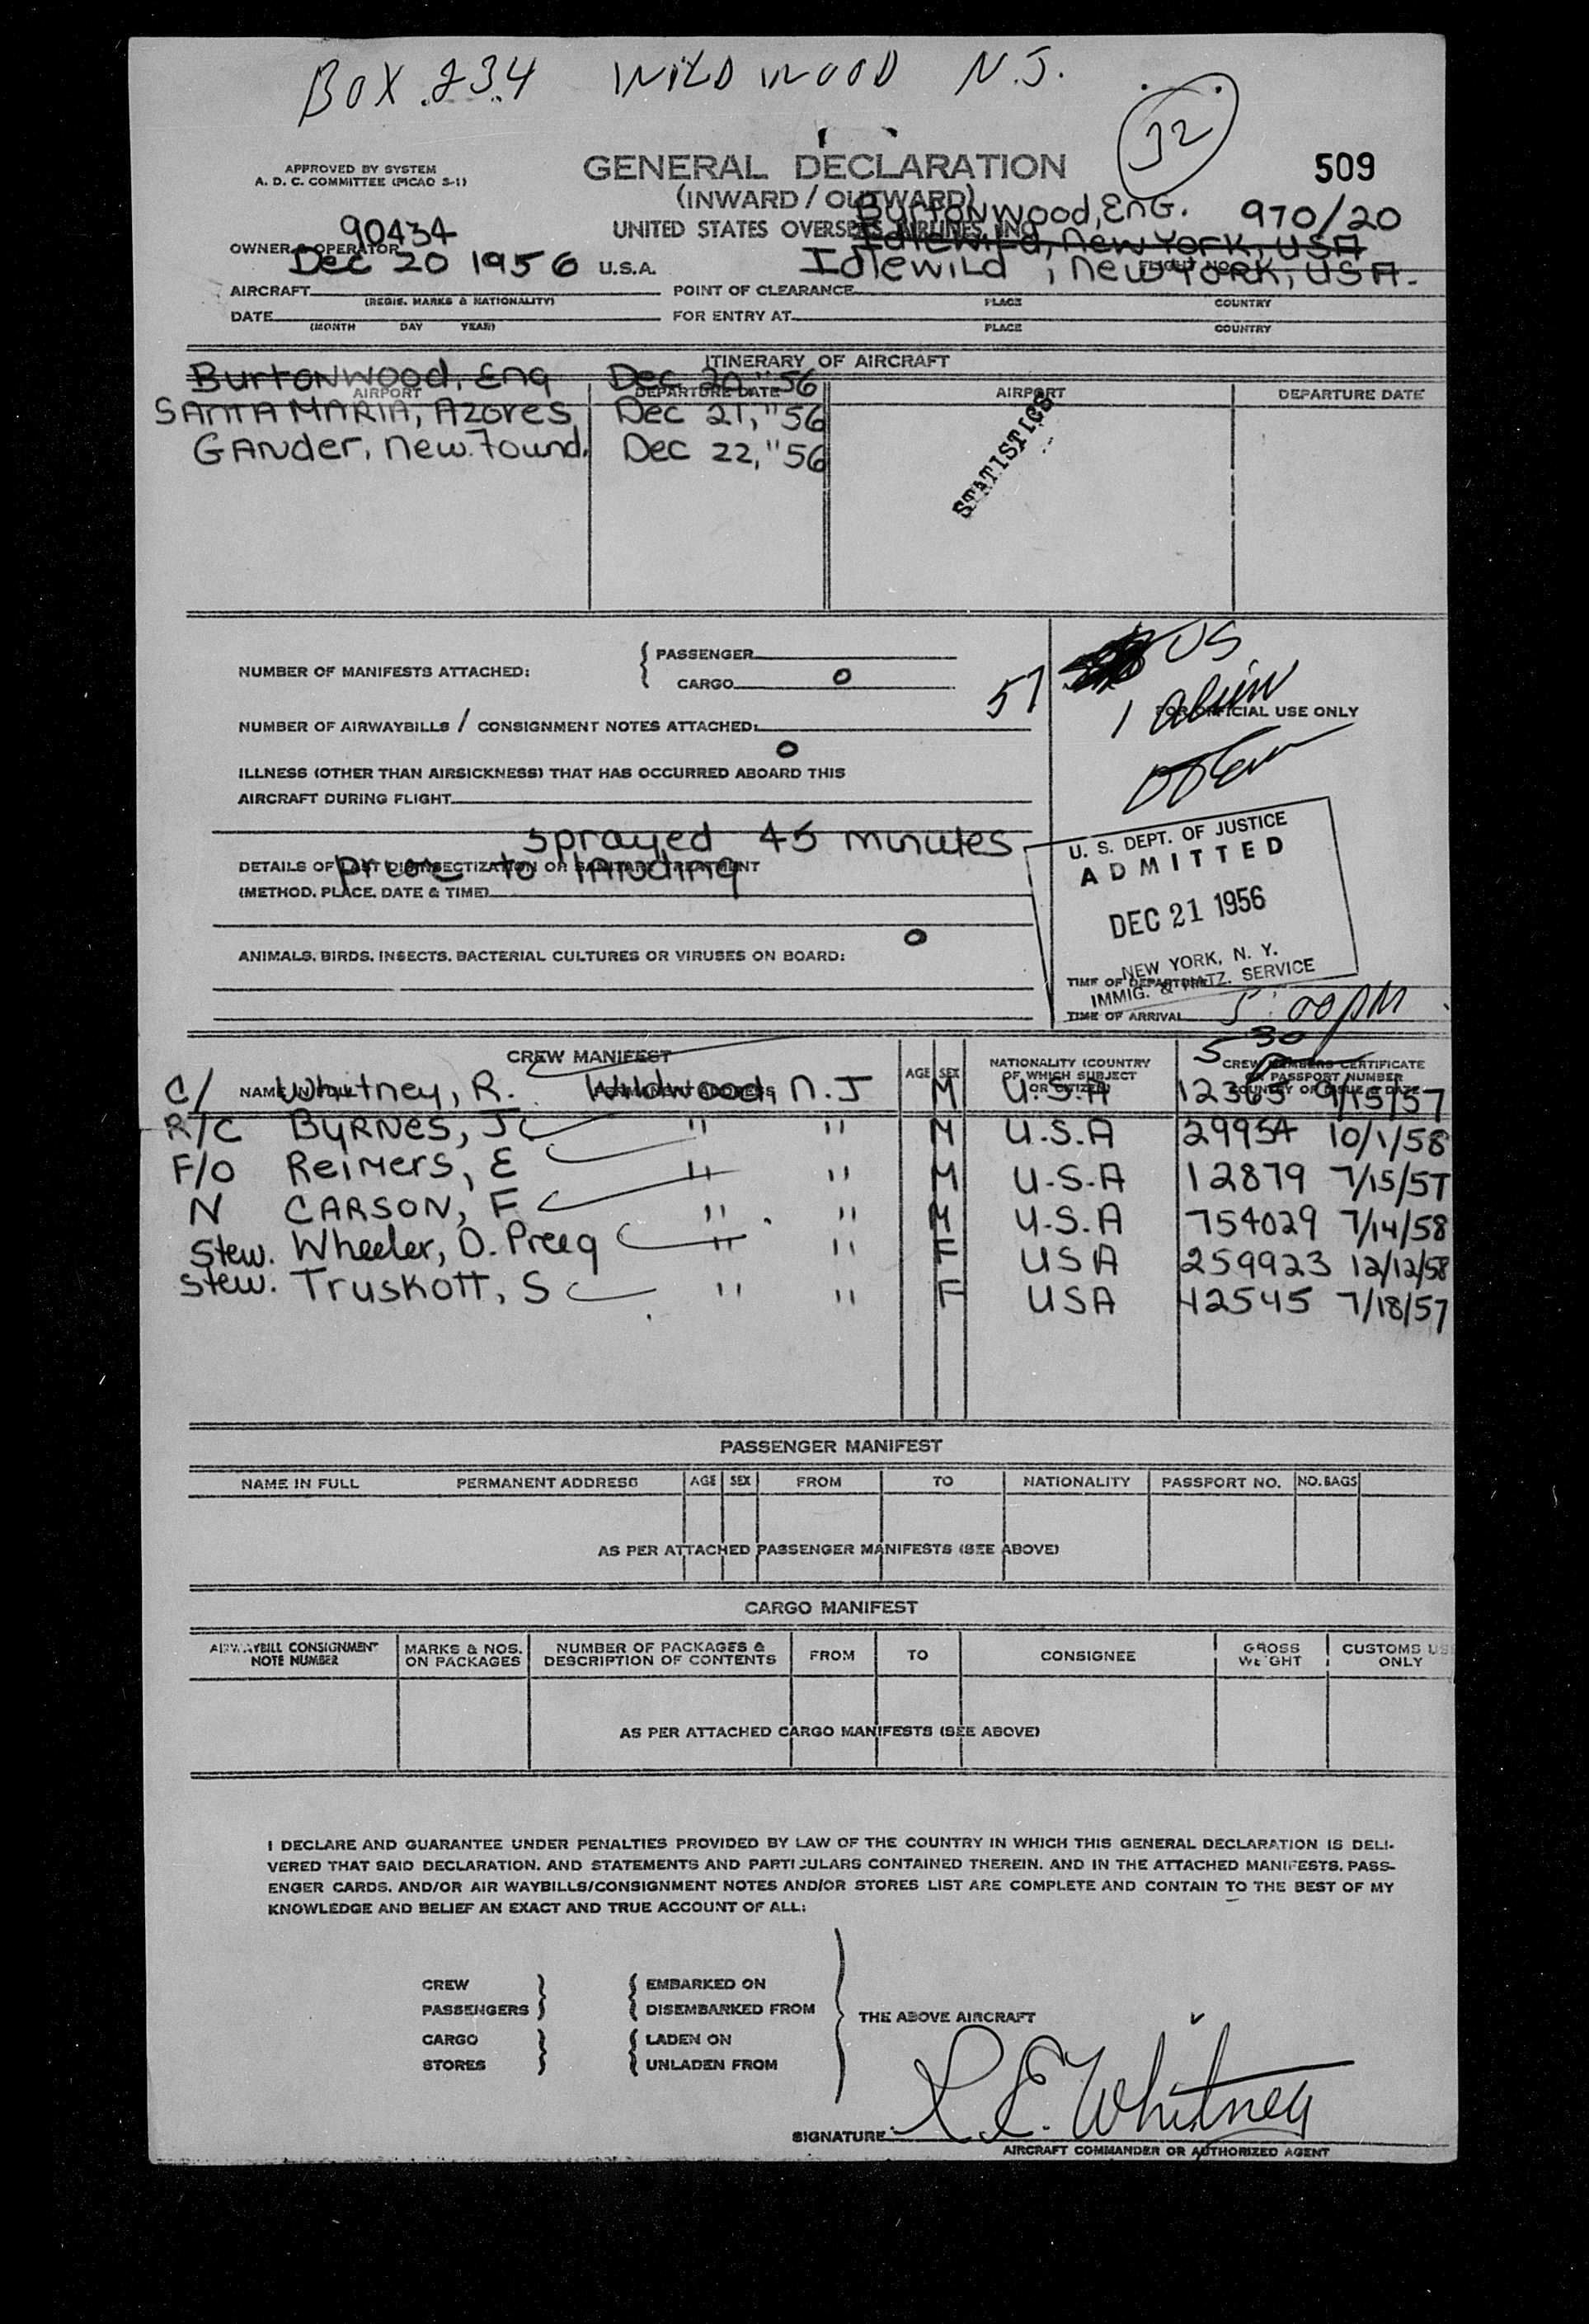 BOX 234 WILDWOOD N.J.
32
APPROVED BY SYSTEM
A. D. C. COMMITTEE (PICAO S-1)
GENERAL DECLARATION
509
(INWARD / OUTWARD)
UNITED STATES OVERSEAS AIRLINES, INC.
Burtonwood, Eng. 970/20
90434
OWNER & OPERATOR
Idlewild, New York, USA
Dec 20 1956 U.S.A.
Idlewild, New York, USA.
AIRCRAFT (REGIS. MARKS & NATIONALITY) POINT OF CLEARANCE PLACE COUNTRY
DATE (MONTH DAY YEAR) FOR ENTRY AT PLACE COUNTRY
ITINERARY OF AIRCRAFT
Burtonwood, Eng Dec 20, "56
AIRPORT DEPARTURE DATE AIRPORT DEPARTURE DATE
SANTA MARIA, Azores Dec 21, "56
Gander, New. Found. Dec 22, "56
STATISTICS
NUMBER OF MANIFESTS ATTACHED: PASSENGER
CARGO 0
57 US
1 alien
FOR OFFICIAL USE ONLY
NUMBER OF AIRWAYBILLS / CONSIGNMENT NOTES ATTACHED:
0
ILLNESS (OTHER THAN AIRSICKNESS) THAT HAS OCCURRED ABOARD THIS
AIRCRAFT DURING FLIGHT
sprayed 45 minutes
prior to landing
DETAILS OF LAST DISINSECTIZATION OR SANITARY TREATMENT
(METHOD, PLACE, DATE & TIME)
U. S. DEPT. OF JUSTICE
ADMITTED
DEC 21 1956
NEW YORK, N. Y.
IMMIG. & NATZ. SERVICE
ANIMALS, BIRDS, INSECTS, BACTERIAL CULTURES OR VIRUSES ON BOARD:
0
TIME OF DEPARTURE
TIME OF ARRIVAL 5:00 PM
5 30
CREW MANIFEST
NAME IN FULL PERMANENT ADDRESS AGE SEX NATIONALITY (COUNTRY OF WHICH SUBJECT OR CITIZEN) CREW MEMBERS CERTIFICATE OR PASSPORT NUMBER COUNTRY OF ISSUE & DATE
C/ Whitney, R. Wildwood, N.J M U.S.A 12365 9/15/57
R/C BYRNES, J " " M U.S.A 29954 10/1/58
F/O Reimers, E " " M U.S.A 12879 7/15/57
N CARSON, F " " M U.S.A 754029 7/14/58
Stew. Wheeler, D. Preeg " " F USA 259923 12/12/58
Stew. Truskott, S " " F USA 42545 7/18/57
PASSENGER MANIFEST
NAME IN FULL PERMANENT ADDRESS AGE SEX FROM TO NATIONALITY PASSPORT NO. NO. BAGS
AS PER ATTACHED PASSENGER MANIFESTS (SEE ABOVE)
CARGO MANIFEST
AIRWAYBILL CONSIGNMENT NOTE NUMBER MARKS & NOS. ON PACKAGES NUMBER OF PACKAGES & DESCRIPTION OF CONTENTS FROM TO CONSIGNEE GROSS WEIGHT CUSTOMS USE ONLY
AS PER ATTACHED CARGO MANIFESTS (SEE ABOVE)
I DECLARE AND GUARANTEE UNDER PENALTIES PROVIDED BY LAW OF THE COUNTRY IN WHICH THIS GENERAL DECLARATION IS DELI-
VERED THAT SAID DECLARATION, AND STATEMENTS AND PARTICULARS CONTAINED THEREIN, AND IN THE ATTACHED MANIFESTS, PASS-
ENGER CARDS, AND/OR AIR WAYBILLS/CONSIGNMENT NOTES AND/OR STORES LIST ARE COMPLETE AND CONTAIN TO THE BEST OF MY
KNOWLEDGE AND BELIEF AN EXACT AND TRUE ACCOUNT OF ALL:
CREW EMBARKED ON
PASSENGERS DISEMBARKED FROM
THE ABOVE AIRCRAFT
CARGO LADEN ON
STORES UNLADEN FROM
SIGNATURE R. E. Whitney
AIRCRAFT COMMANDER OR AUTHORIZED AGENT